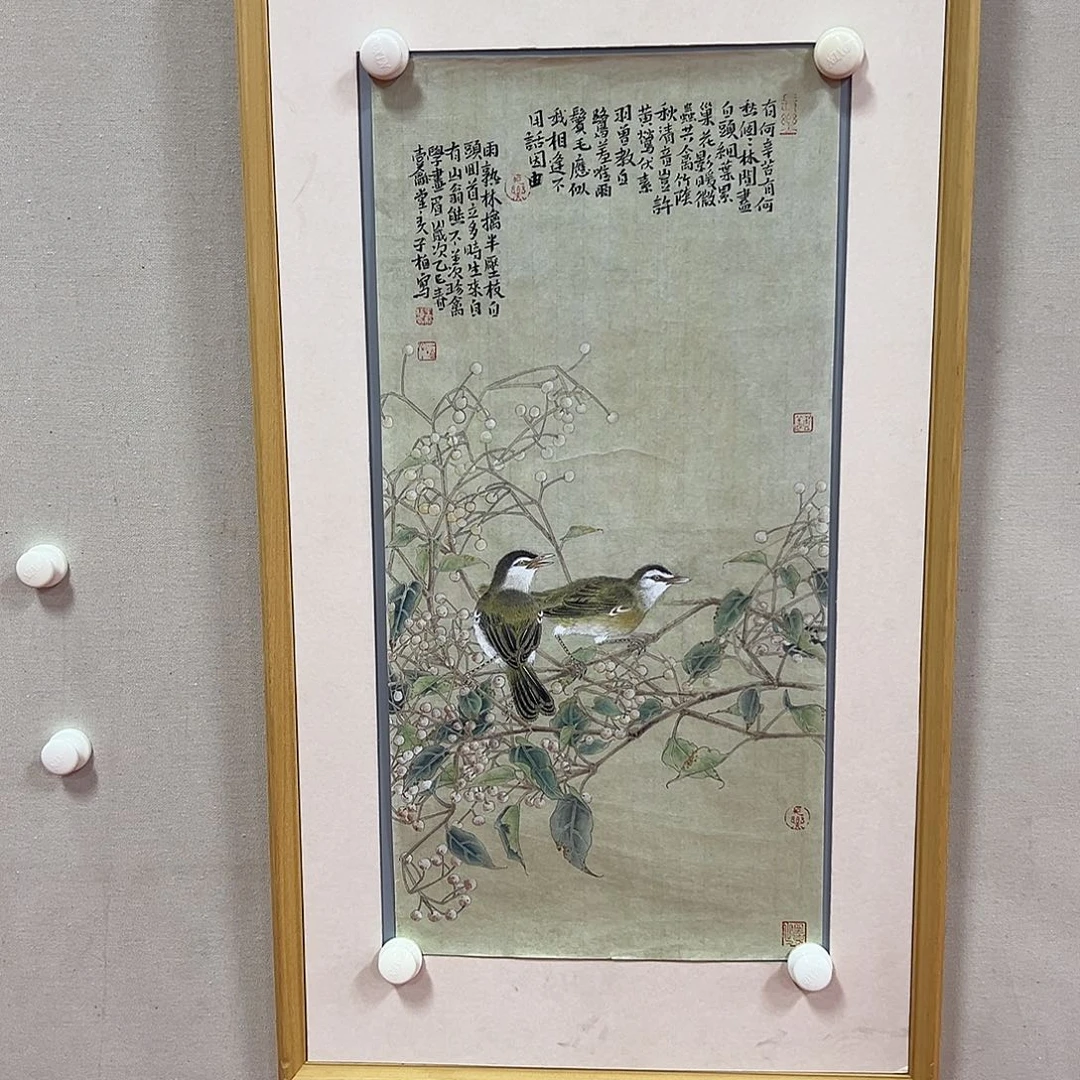 有何辛苦有何
愁個ミ林間盡
白頭細葉累
巢花影暖微
蟲共食竹陰
秋清音豈許
黃鶯伏素
羽曾教白
鷺羞惟雨
鬢毛應似
我相逢不
用話因由
雨熟林擒半壓枝白
頭回首立多時生來自
有山翁態不並次珍禽
學畫眉歲次乙巳春
堂主子柏寫